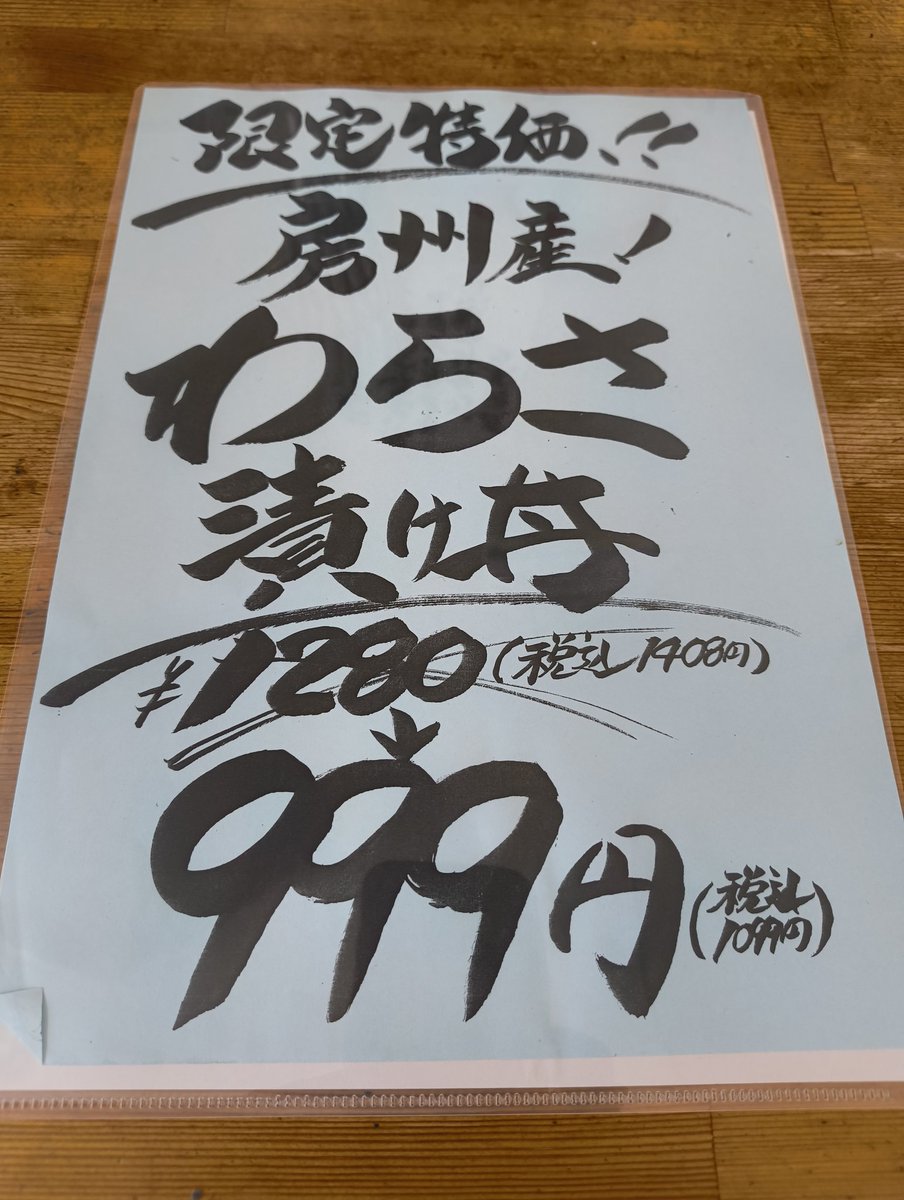 限定特価!!
房州産!
わらさ
漬け丼
¥1280(税込1408円)
999円(税込
1099円)